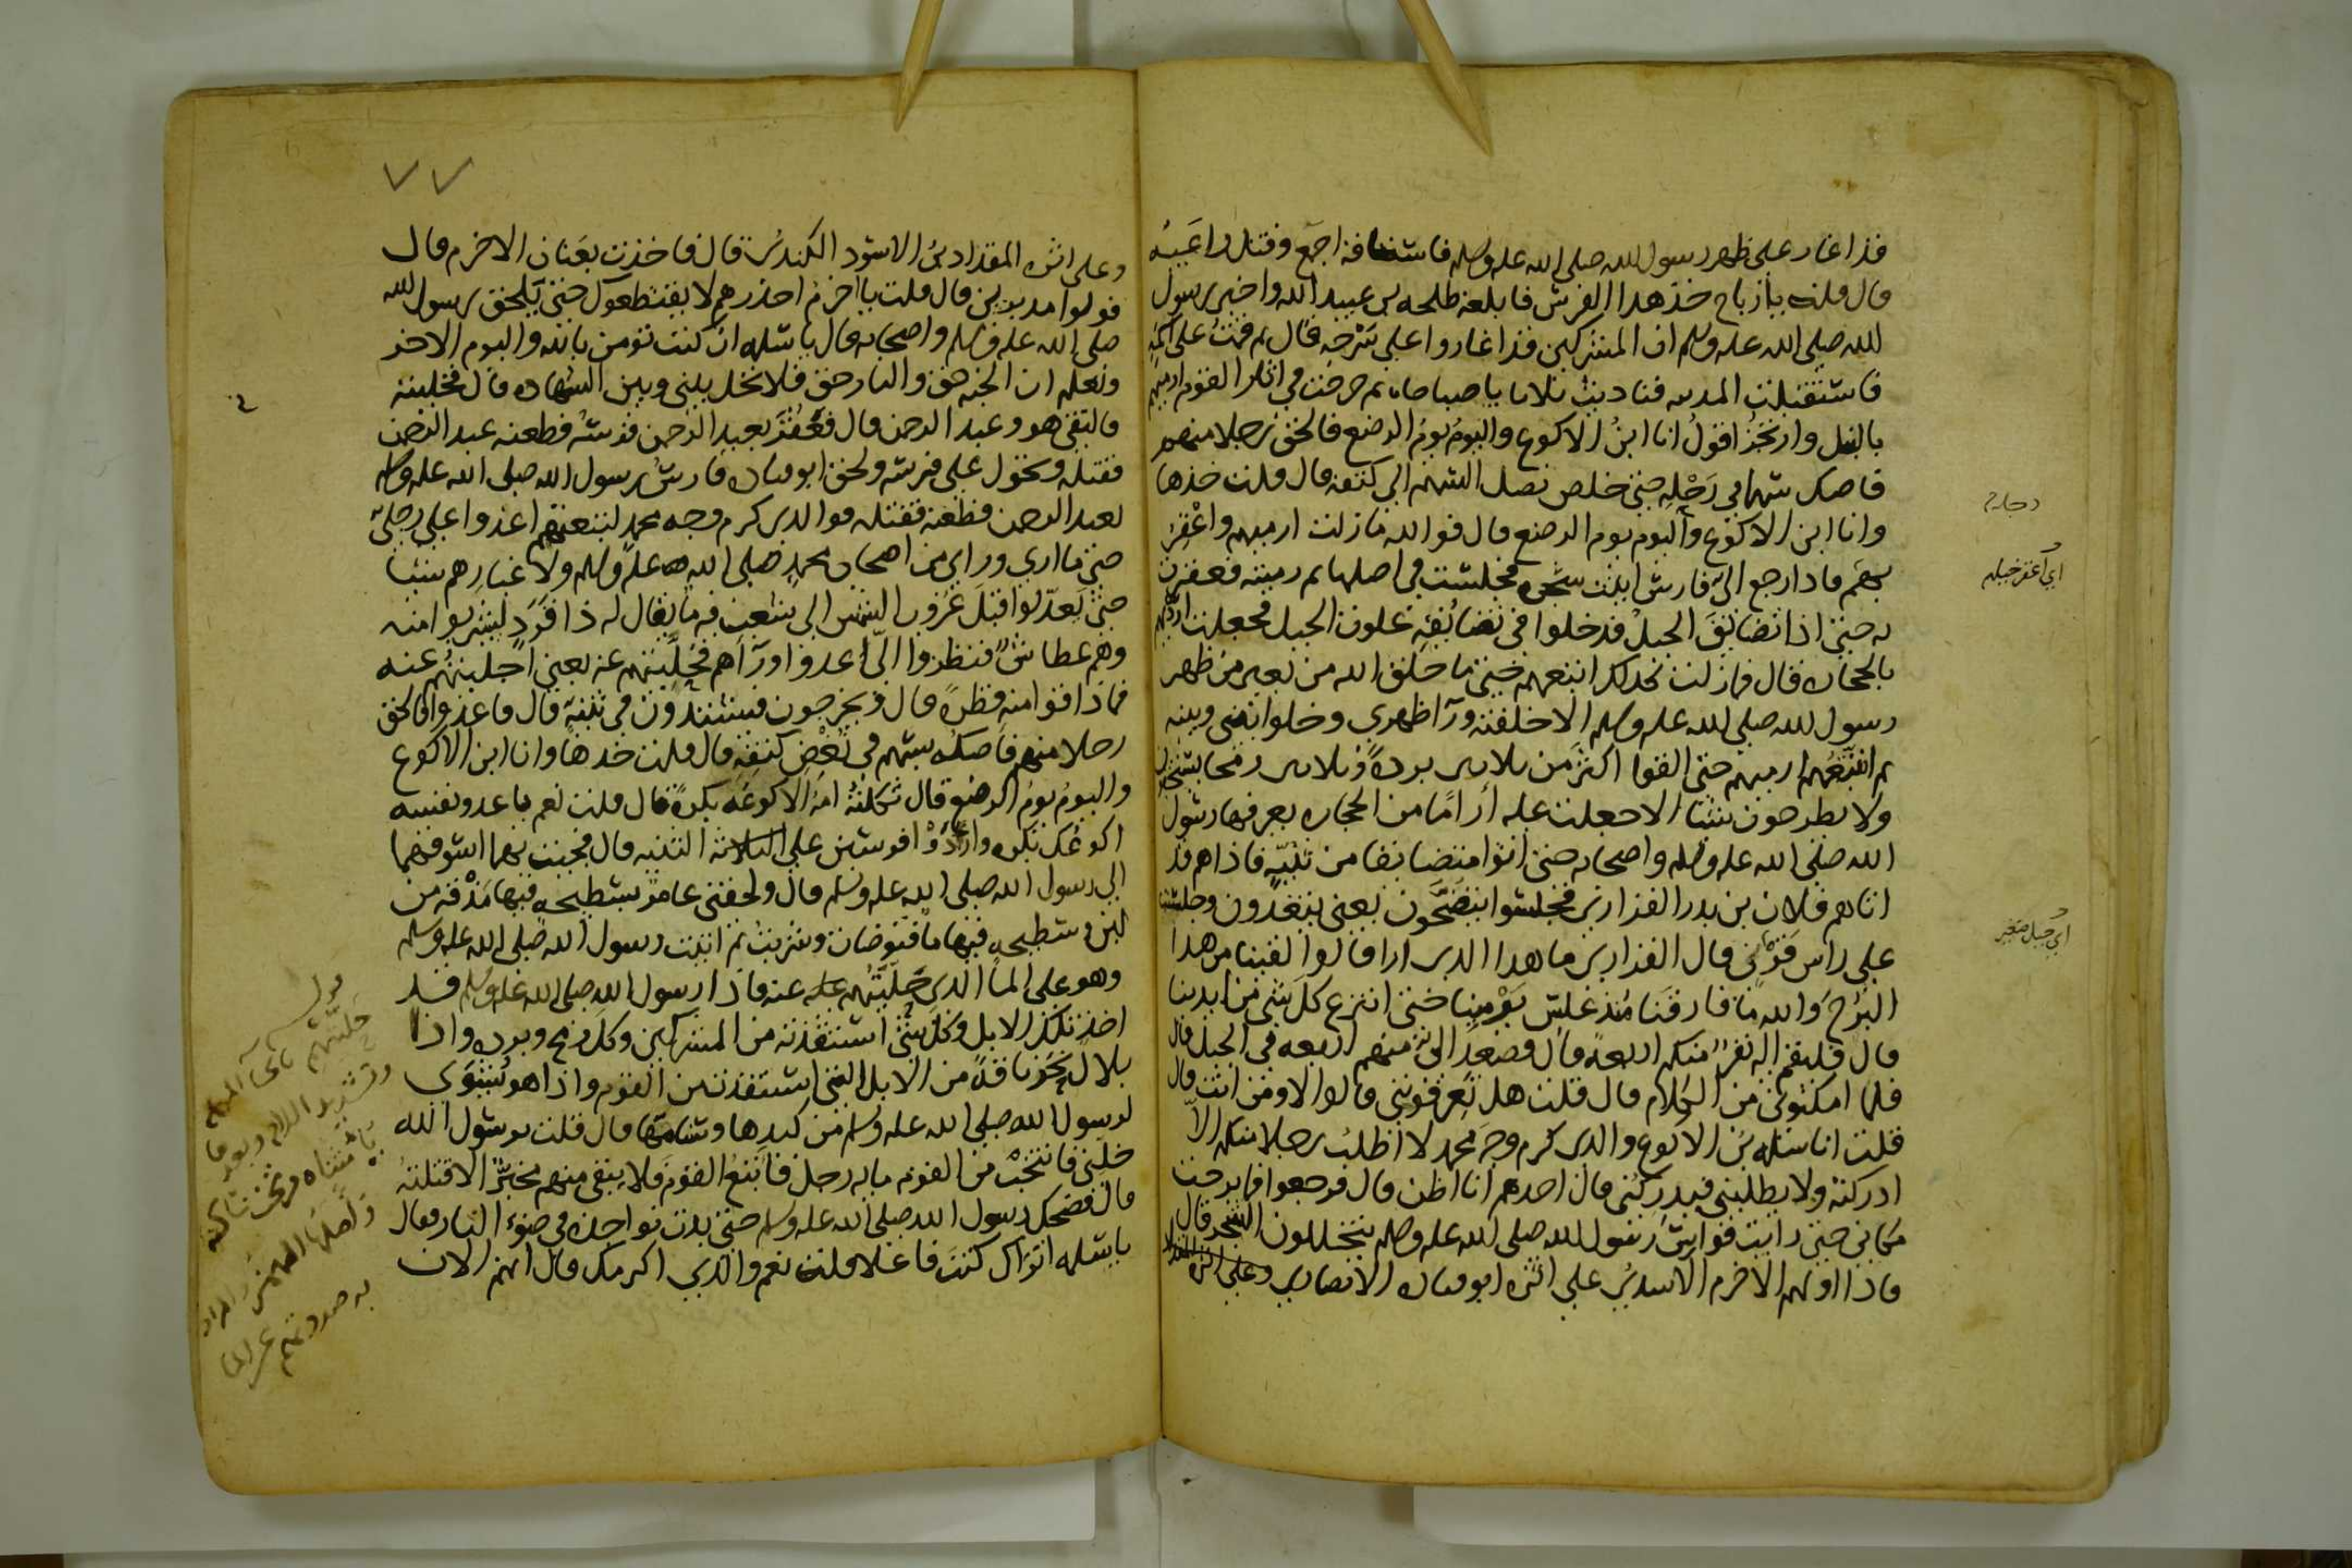 قد اغار على ظهر رسول الله صلى الله عليه وسلم فاستاقه اجمع وقتل راعيه
قال قلت يا رباح خذ هذا الفرس فابلغه طلحه بن عبيد الله واخبر رسول
الله صلى الله عليه وسلم ان المشركين قد اغاروا على سرحه قال ثم قمت على اكمه
فاستقبلت المدينه فناديت ثلاثا يا صباحاه ثم خرجت في اثار القوم ارميهم
بالنبل وارتجز اقول انا ابن الاكوع واليوم يوم الرضع فالحق رجلا منهم
فاصك سهما في رحله حتى خلص نصل السهم الى كتفه قال قلت خذها
وانا ابن الاكوع واليوم يوم الرضع قال فوالله ما زلت ارميهم واعقر
بهم فاذا رجع الي فارس اتيت شجره فجلست في اصلها ثم رميته فعقرت
به حتى اذا تضايق الجبل فدخلوا في تضايقه علوت الجبل فجعلت ارديهم
بالحجاره قال فما زلت كذلك اتبعهم حتى ما خلق الله من بعير من ظهر
رسول الله صلى الله عليه وسلم الا خلفته ورآ ظهري وخلوا بيني وبينه
ثم اتبعتهم ارميهم حتى القوا اكثر من ثلاثين برده وثلاثين رمحا يستخفون
ولا يطرحون شيئا الا جعلت عليه آراما من الحجاره يعرفها رسول
الله صلى الله عليه وسلم واصحابه حتى اتوا متضايقا من ثنيه فاذا هم قد
اتاهم فلان بن بدر الفزاري فجلسوا يتضحون يعني يتغدون وجلست
على راس قرن قال الفزاري ما هذا الذي ارا قالوا لقينا من هذا
البرح والله ما فارقنا منذ غلس يرمينا حتى انتزع كل شي من ايدينا
قال فليقم اليه نفر منكم اربعه قال فصعد الي منهم اربعه في الجبل قال
فلما امكنوني من الكلام قال قلت هل تعرفونني قالوا لا ومن انت قال
قلت انا سلمه بن الاكوع والذي كرم وجه محمد لا اطلب رجلا منكم الا
ادركته ولا يطلبني فيدركني قال احدهم انا اظن قال فرجعوا فما برحت
مكاني حتى رايت فوارس رسول الله صلى الله عليه وسلم يتخللون الشجر قال
فاذا اولهم الاخرم الاسدي على اثره ابو قتاده الانصاري وعلى اثره
اي اعقر خيلهم
اي جبل صغير
٧٧
وعلى اثره المقداد بن الاسود الكندي قال فاخذت بعنان الاخرم قال
فولوا مدبرين قال قلت يا اخرم احذرهم لا يقتطعوك حتى يلحق رسول الله
صلى الله عليه وسلم واصحابه قال يا سلمه ان كنت تومن بالله واليوم الاخر
وتعلم ان الجنه حق والنار حق فلا تخل بيني وبين الشهاده قال فخليته
فالتقى هو وعبد الرحمن قال فعقر بعبد الرحمن فرسه فطعنه عبد الرحمن
فقتله وتحول على فرسه ولحق ابو قتاده فارس رسول الله صلى الله عليه وسلم
بعبد الرحمن فطعنه فقتله فوالذي كرم وجه محمد لتبعتهم اعدوا على رجلي
حتى ما ارى وراي من اصحاب محمد صلى الله عليه وسلم ولا غبارهم شيئا
حتى يعدلوا قبل غروب الشمس الى شعب فيه ما يقال له ذا قرد ليشربوا منه
وهم عطاش فنظروا الي اعدوا ورآهم فحليتهم عنه يعني اجليتهم عنه
فما ذاقوا منه قطره قال ويخرجون فيشتدون في ثنيه قال فاعدوا فالحق
رجلا منهم فاصكه بسهم في نغض كتفه قال قلت خذها وانا ابن الاكوع
واليوم يوم الرضع قال ثكلته امه اكوعه بكره قال قلت نعم يا عدو نفسه
اكوعك بكره واردوا فرسين على الثنيه قال فجيت بهما اسوقهما
الى رسول الله صلى الله عليه وسلم قال ولحقني عامر بسطيحه فيها مذقه من
لبن وسطيحه فيها ما فتوضات وشربت ثم اتيت رسول الله صلى الله عليه وسلم
وهو على الما الذي حليتهم عنه فاذا رسول الله صلى الله عليه وسلم قد
اخذ تلك الابل وكل شي استنقذته من المشركين وكل رمح وبرده واذا
بلال نحر ناقه من الابل التي استنقذت من القوم واذا هو يشوي
لرسول الله صلى الله عليه وسلم من كبدها وسنامها قال قلت يرسول الله
خلني فانتخب من القوم مايه رجل فاتبع القوم فلا يبقى منهم مخبر الا قتلته
قال فضحك رسول الله صلى الله عليه وسلم حتى بدت نواجذه في ضوء النار فقال
يا سلمه اتراك كنت فاعلا قلت نعم والذي اكرمك قال انهم الان
قوله
حليتهم بالحا المهمله
وتشديد اللام وبعدها
يا مثناه من تحت ساكنه
واصلها الهمز